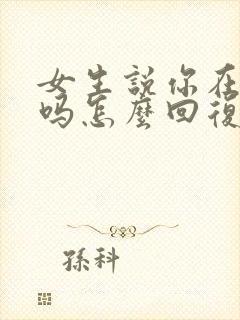 女生說你在
吗怎麼回復
孫科